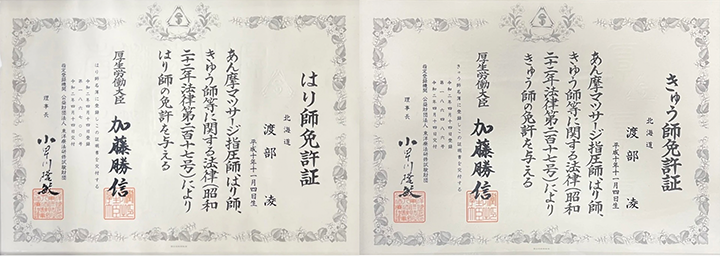 はり師免許証
北海道
渡部 凌
平成十年十一月四日生
あん摩マツサージ指圧師、はり師、
きゆう師等に関する法律(昭和
二十二年法律第二百十七号)により
はり師の免許を与える
厚生労働大臣 加藤勝信
はり師名簿に登録しこの証明書を交付する
指定登録機関 公益財団法人 東洋療法研修試験財団
理事長
きゅう師免許証
北海道
渡部 凌
平成十年十一月四日生
あん摩マツサージ指圧師、はり師、
きゆう師等に関する法律(昭和
二十二年法律第二百十七号)により
きゆう師の免許を与える
厚生労働大臣 加藤勝信
きゅう師名簿に登録しこの証明書を交付する
指定登録機関 公益財団法人 東洋療法研修試験財団
理事長